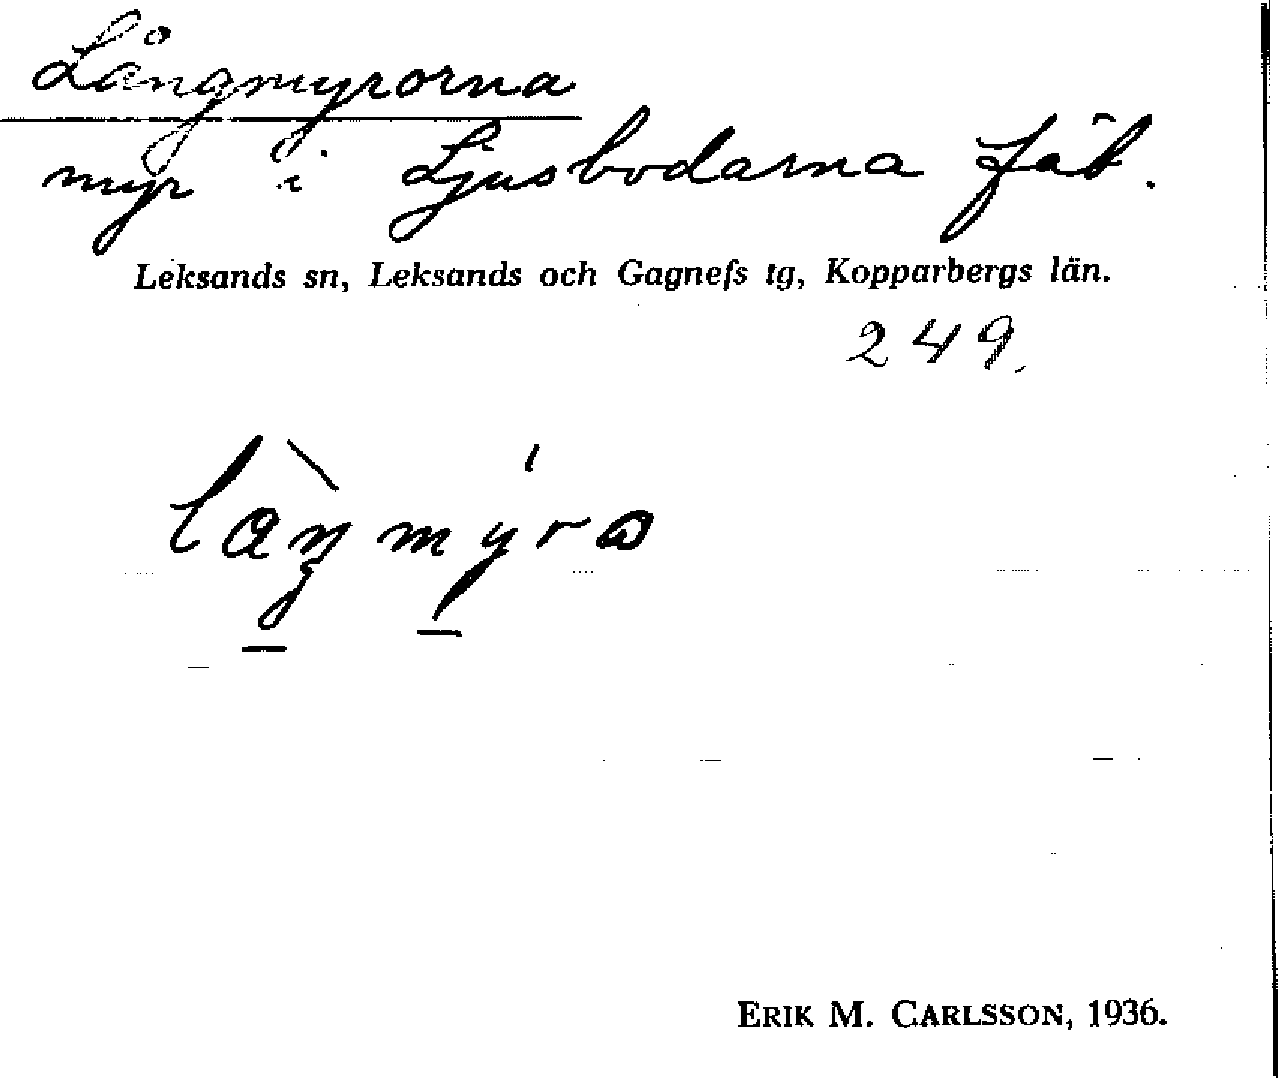 Långmyrorna
myr i Ljusbodarna fäb.
Leksands sn, Leksands och Gagnefs tg, Kopparbergs län.
249.
ERIK M. CARLSSON, 1936.